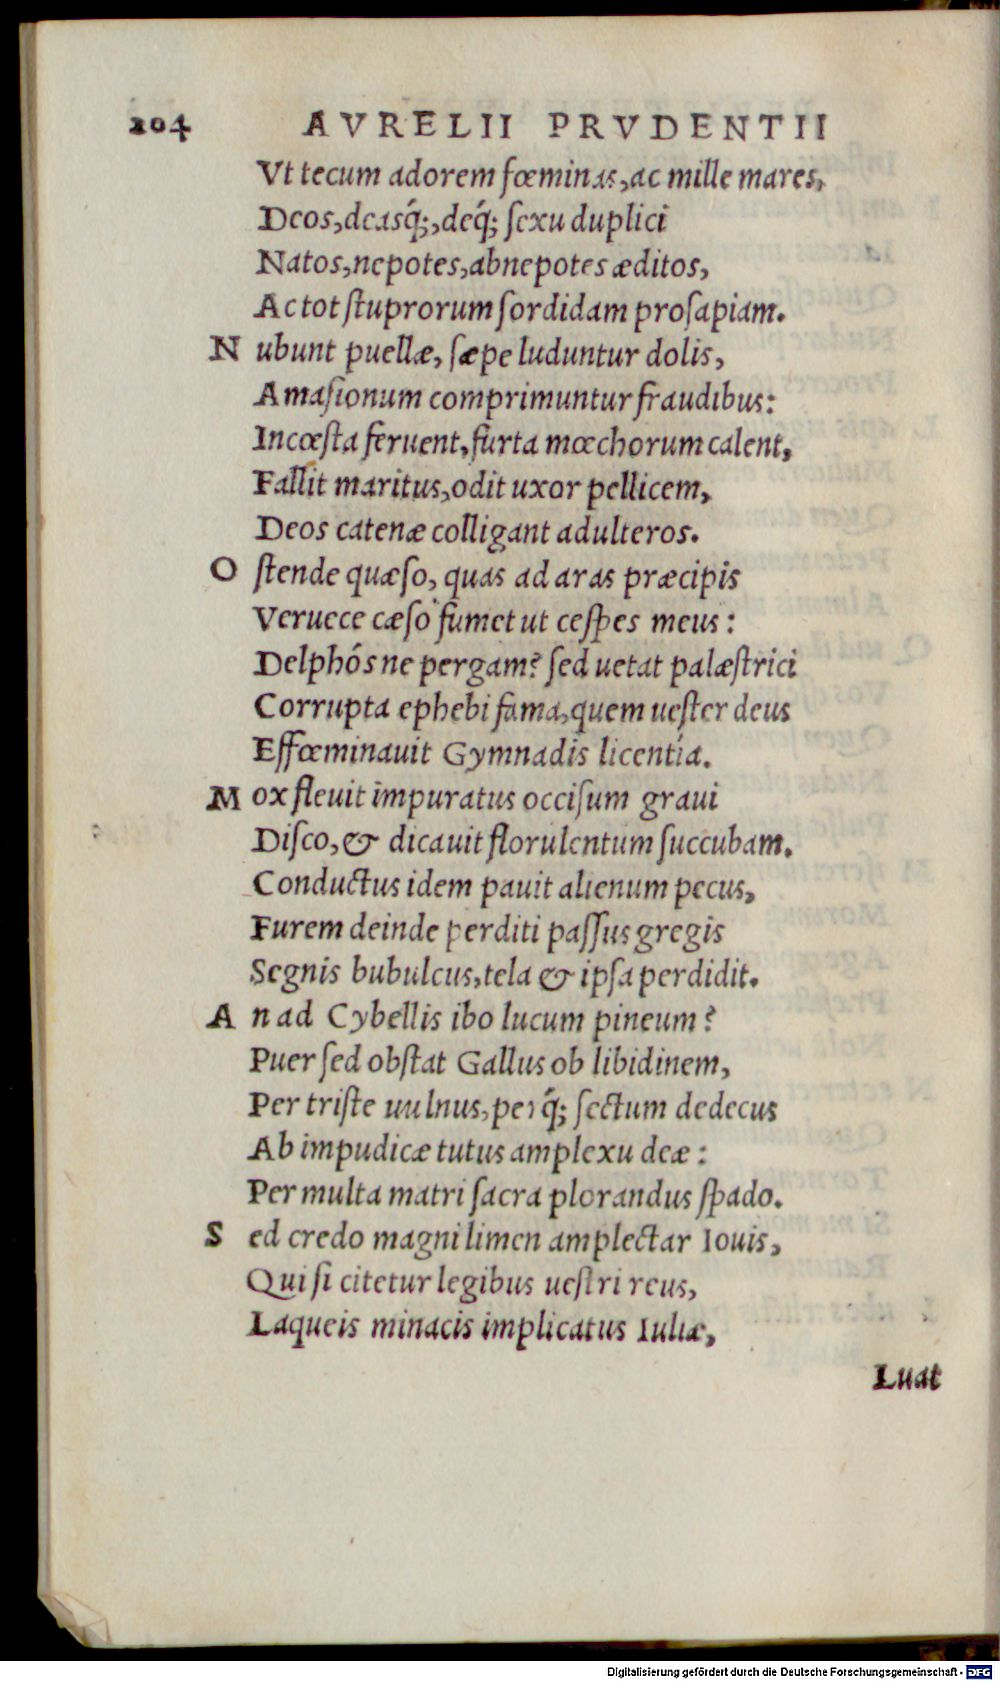 204 AVRELII PRVDENTII
Vt tecum adorem fœminas, ac mille mares,
Deos, deasq́;, deq́; ſexu duplici
Natos, nepotes, abnepotes æditos,
Ac tot ſtuprorum ſordidam proſapiam.
N ubunt puellæ, ſæpe luduntur dolis,
Amaſionum comprimuntur fraudibus:
Incœſta feruent, furta mœchorum calent,
Fallit maritus, odit uxor pellicem,
Deos catenæ colligant adulteros.
O ſtende quæſo, quas ad aras præcipis
Veruece cæſo fumet ut ceſpes meus:
Delphós ne pergam? ſed uetat palæſtrici
Corrupta ephebi fama, quem ueſter deus
Effœminauit Gymnadis licentia.
M ox fleuit impuratus occiſum graui
Diſco, & dicauit florulentum ſuccubam.
Conductus idem pauit alienum pecus,
Furem deinde perditi paſſus gregis
Segnis bubulcus, tela & ipſa perdidit.
A n ad Cybellis ibo lucum pineum?
Puer ſed obſtat Gallus ob libidinem,
Per triſte uulnus, perq́; ſectum dedecus
Ab impudicæ tutus amplexu deæ:
Per multa matri ſacra plorandus ſpado.
S ed credo magni limen amplectar Iouis,
Qui ſi citetur legibus ueſtri reus,
Laqueis minacis implicatus Iuliæ,
Luat
Digitalisierung gefördert durch die Deutsche Forschungsgemeinschaft - DFG